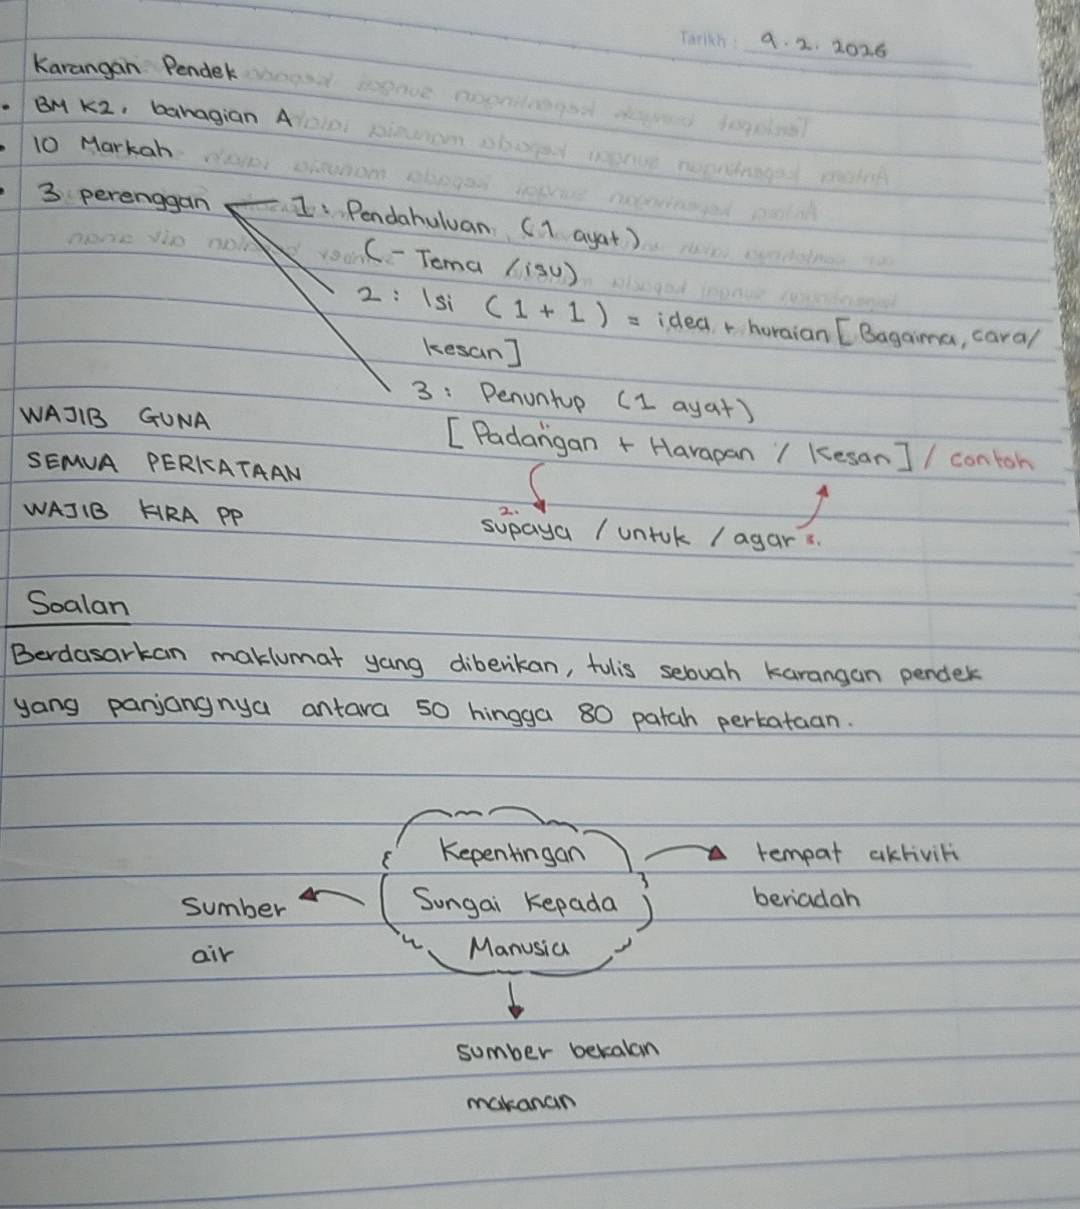 Tarikh : 9.2.2026
Karangan Pendek
• BM K2, bahagian A
• 10 Markah
• 3 perenggan 1 : Pendahuluan (1 ayat)
(- Tema / isu)
2 : Isi (1 + 1) = idea + huraian [Bagaima, cara/
kesan]
3 : Penuntup (1 ayat)
WAJIB GUNA [Padangan + Harapan / Kesan] / contoh
SEMUA PERKATAAN
WAJIB KIRA PP 2. supaya / untuk / agar 3.
Soalan
Berdasarkan maklumat yang diberikan, tulis sebuah karangan pendek
yang panjangnya antara 50 hingga 80 patah perkataan.
Kepentingan
Sungai Kepada
Manusia
tempat aktiviti
beriadah
Sumber
air
sumber bekalan
makanan